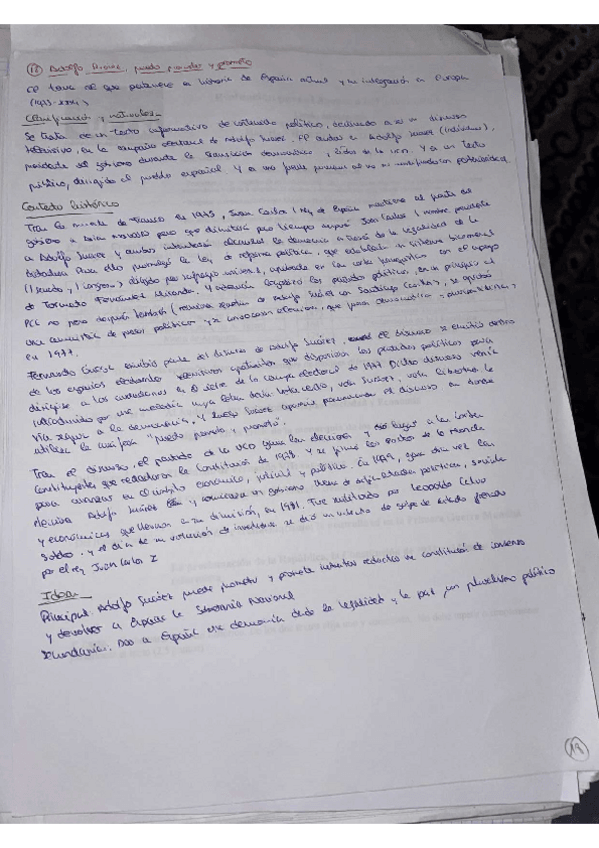 (12) Adolfo Suárez, puedo prometer y prometo
El texto al que pertenece a historia de España actual y su integración en Europa
(1975-2004)
Clasificación y naturaleza
Se trata de un texto informativo de contenido político, destinado a un discurso
televisivo, en la campaña electoral de Adolfo Suárez. El autor es Adolfo Suárez (individual),
presidente del gobierno durante la transición democrática, líder de la UCD. Y es un texto
político, dirigido al pueblo español. Y es una fuente primaria
Contexto histórico
Tras la muerte de Franco en 1975, Juan Carlos I rey de España mantiene al frente del
gobierno a Arias Navarro pero que dimitirá poco tiempo Juan Carlos I nombra presidente
a Adolfo Suárez y ambos intentarán la democracia a través de la legalidad de la
dictadura. Para ello promulgó la ley de reforma política, que establecía un sistema bicameral
(1 senado, 1 congreso) elegido por sufragio universal, aprobada en las cortes franquistas con el apoyo
de Torcuato Fernández Miranda. los partidos políticos, en un principio el
PCE no pero después también (reunión de Adolfo Suárez con Santiago Carrillo), se aprobó
una amnistía de presos políticos y se convocaron elecciones, que fueron democráticas
en 1977.
Fernando Ónega escribió parte del discurso de Adolfo Suárez, el discurso se emitió dentro
de los espacios electorales televisivos gratuitos que disponían los partidos políticos para
dirigirse a los ciudadanos en el cierre de la campaña electoral de 1977. Dicho discurso venía
introducido por una melodía cuya letra decía: vota centro, vota Suárez, vota libertad, la
vía segura a la democracia. Y luego Suárez aparecía pronunciando el discurso en donde
utilizó la anáfora "puedo prometer y prometo".
Tras el discurso, el partido de la UCD gana las elecciones, y dio lugar a las cortes
constituyentes que redactaron la Constitución de 1978 y se firman los pactos de la Moncloa
para avanzar en el ámbito económico, judicial y político. En 1979, gana otra vez las
elecciones Adolfo Suárez y comenzará un gobierno lleno de dificultades políticas, sociales
y económicas que llevaron a su dimisión, en 1981. Fue sustituido por Leopoldo Calvo
Sotelo. y el día de su votación de investidura se dio un intento de golpe de estado frenado
por el rey Juan Carlos I
Ideas
Principal: Adolfo Suárez puede prometer y promete intentar redactar una constitución de consenso
y devolver a España la Soberanía Nacional
Secundarias: Dar a España una democracia desde la legalidad y la paz, un pluralismo político
19